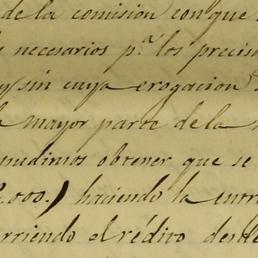 de la comision con que
necesarios p.ª los precis
y sin cuya erogacion
mayor parte de la
pudimos obtener que se
.000.) haciendo la entr
rriendo el redito desde